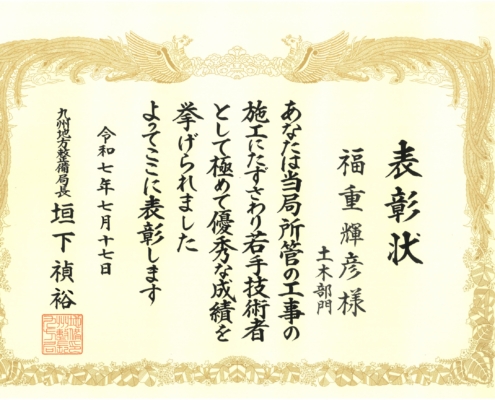 表彰状
土木部門
福重輝彦様
あなたは当局所管の工事の
施工にたずさわり若手技術者
として極めて優秀な成績を
挙げられました
よってここに表彰します
令和七年七月十七日
九州地方整備局長
垣下禎裕